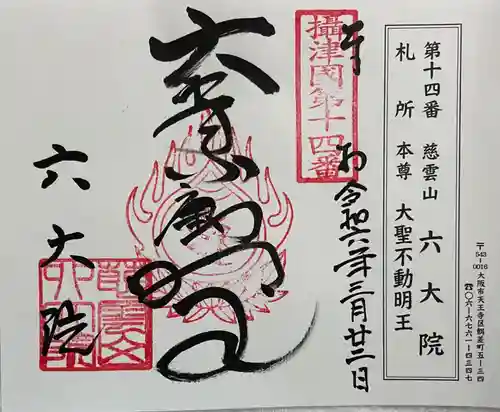 〒543-0016 大阪市天王寺区餌差町五-三四
☎〇六-六七六一-四三四七
第十四番 慈雲山 六大院
札所本尊 大聖不動明王
奉拝 令和六年三月廿二日
攝津國第十四番
六大院